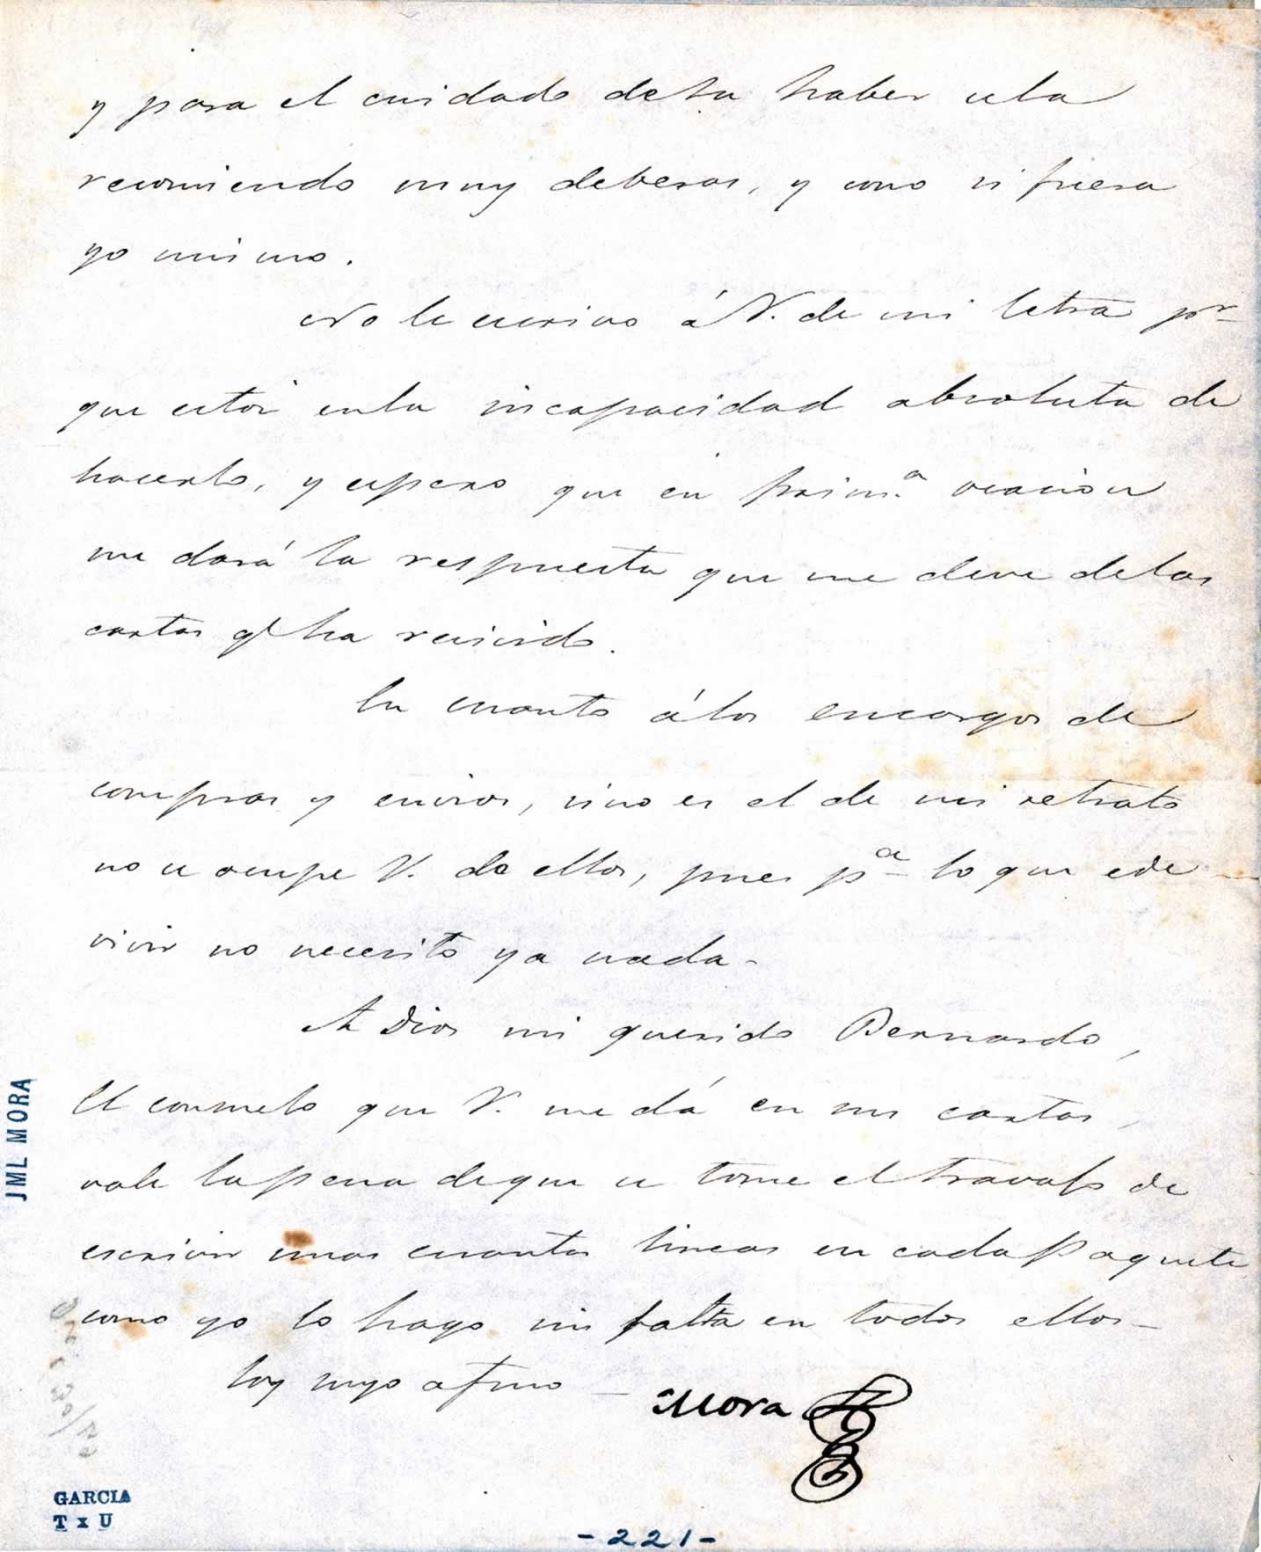 y para el cuidado de su haber se la
recomiendo muy deberas, y como si fuera
yo mismo.
No le escrivo á V. de mi letra pr
que estoi en la incapacidad absoluta de
hacerlo, y espero que en prim.a ocacion
me dará la respuesta que me deve de las
cartas q ha recivido.
En cuanto á los encargos de
compras y envios, sino es el de mi retrato
no se ocupe V. de ellos, pues pa lo que e de
vivir no necesito ya nada-
A Dios mi querido Bernardo,
El consuelo que V. me dá en sus cartas,
vale la pena de que se tome el travajo de
escrivir unas cuantas lineas en cada Paquete
como yo lo hago sin falta en todos ellos-
Soy suyo afmo - Mora
JML MORA
GARCIA
T x U
-221-